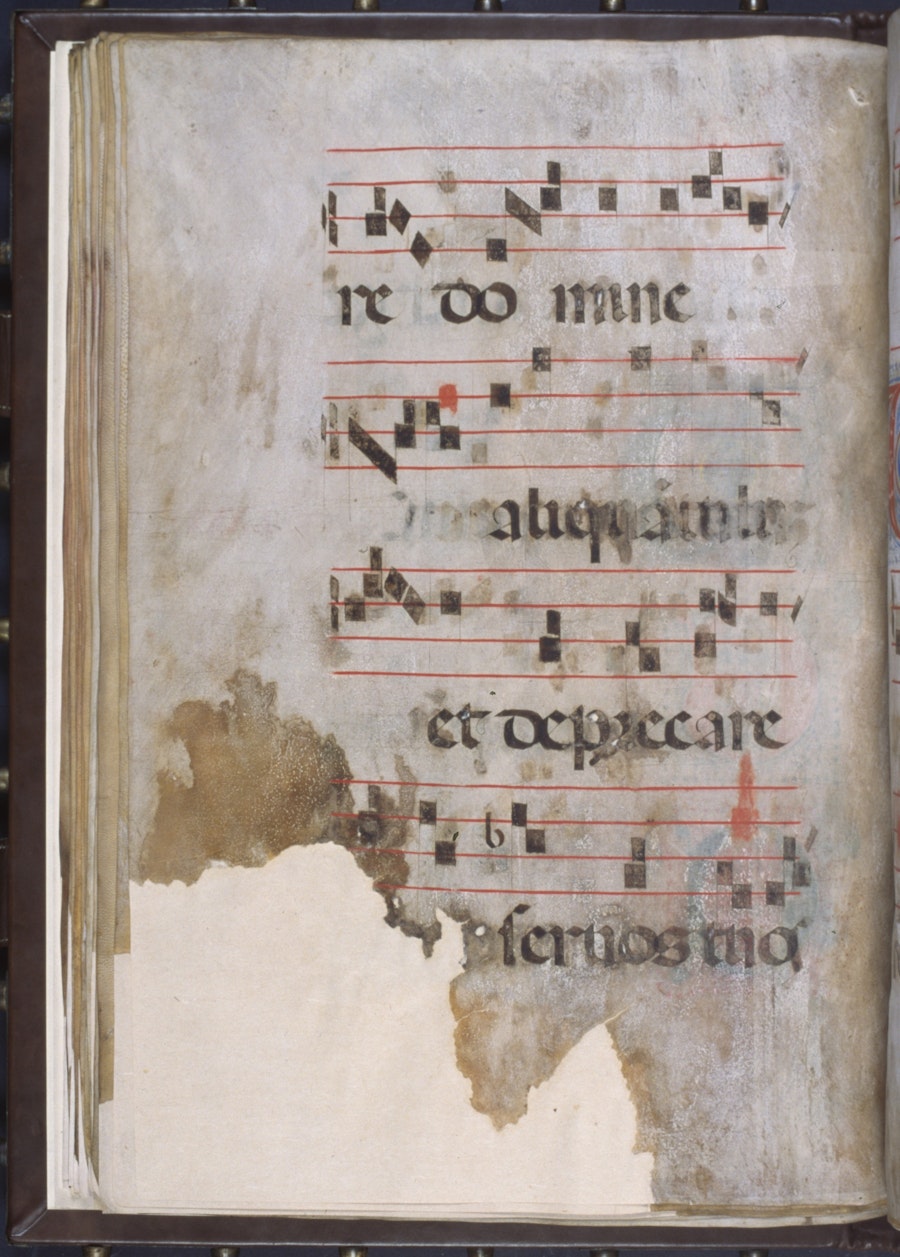 re do mine
aliquantulu
et deprecare
servos tuos